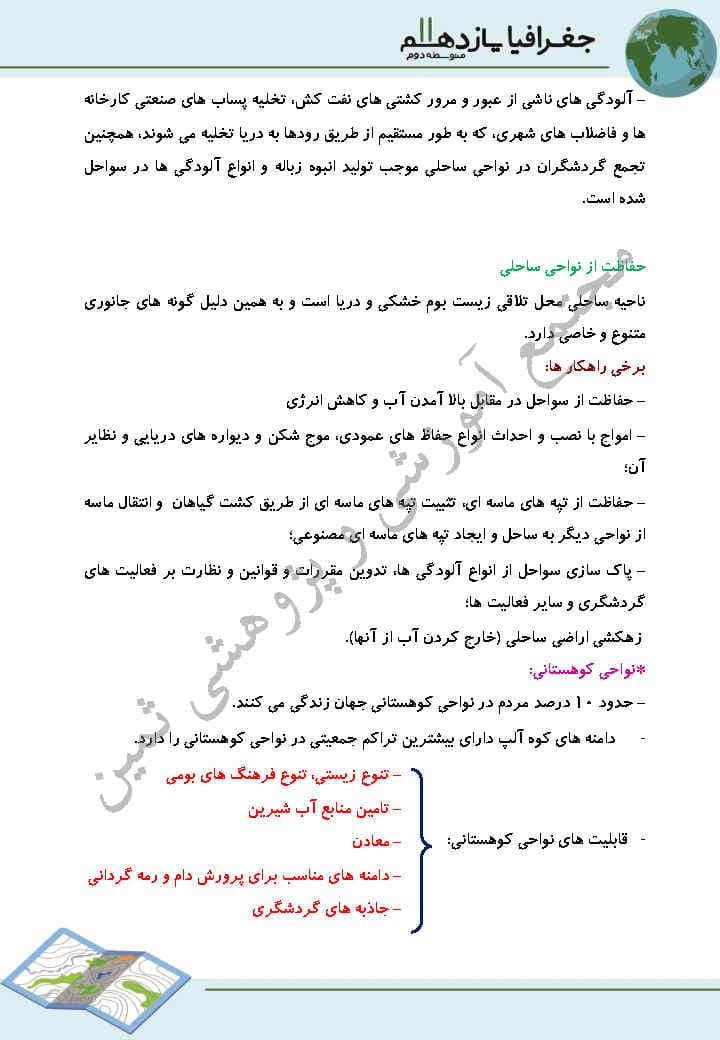 جغرافیا یازدهم
متوسطه دوم
– آلودگی های ناشی از عبور و مرور کشتی های نفت کش، تخلیه پساب های صنعتی کارخانه
ها و فاضلاب های شهری، که به طور مستقیم از طریق رودها به دریا تخلیه می شوند، همچنین
تجمع گردشگران در نواحی ساحلی موجب تولید انبوه زباله و انواع آلودگی ها در سواحل
شده است.
حفاظت از نواحی ساحلی
ناحیه ساحلی محل تلاقی زیست بوم خشکی و دریا است و به همین دلیل گونه های جانوری
متنوع و خاصی دارد.
برخی راهکار ها:
– حفاظت از سواحل در مقابل بالا آمدن آب و کاهش انرژی
– امواج با نصب و احداث انواع حفاظ های عمودی، موج شکن و دیواره های دریایی و نظایر
آن؛
– حفاظت از تپه های ماسه ای، تثبیت تپه های ماسه ای از طریق کشت گیاهان و انتقال ماسه
از نواحی دیگر به ساحل و ایجاد تپه های ماسه ای مصنوعی؛
– پاک سازی سواحل از انواع آلودگی ها، تدوین مقررات و قوانین و نظارت بر فعالیت های
گردشگری و سایر فعالیت ها؛
زهکشی اراضی ساحلی (خارج کردن آب از آنها).
*نواحی کوهستانی:
– حدود ۱۰ درصد مردم در نواحی کوهستانی جهان زندگی می کنند.
- دامنه های کوه آلپ دارای بیشترین تراکم جمعیتی در نواحی کوهستانی را دارد.
- قابلیت های نواحی کوهستانی:
– تنوع زیستی، تنوع فرهنگ های بومی
– تامین منابع آب شیرین
– معادن
– دامنه های مناسب برای پرورش دام و رمه گردانی
– جاذبه های گردشگری
مجتمع آموزشی و پژوهشی ثمین